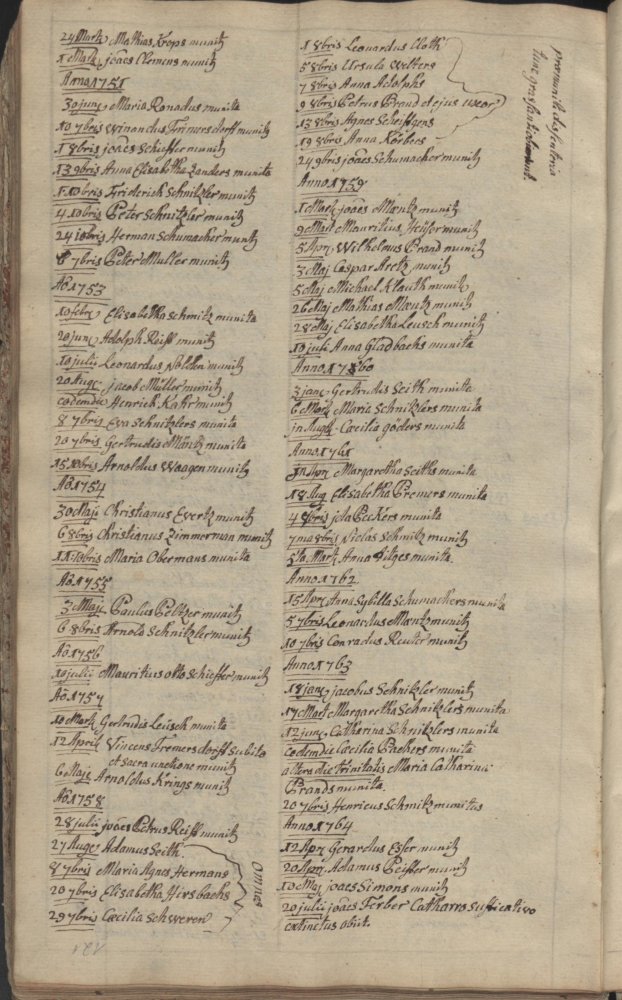 24 Martz Mathias Krops munitg
1 Martz joaes Clemens munitg
Anno 1751
30 junj Maria Ronadus munita
10 7bris Winandus Trimersdorff munitg
1 8bris joaes Schieffer munitg
13 9bris Anna Elisabetha Zanders munita
1 10bris Friderich Schnitzler munitg
4 10bris Peter Schnitzler munitg
24 10bris Herman Schumacher munitg
7bris Peter Muller munitg
Aõ 1753
10 febrj Elisabetha Schmitz munita
20 junj Adolph Reiff munitg
10 julii Leonardus Nolden munitg
20 Augj jacob Müller munitg
eodem die Henrich Kahr munitg
8 7bris Eva Schnitzlers munita
20 7bris Gertrudis Mäntz munita
15 10bris Arnoldus Waagen munitg
Aõ 1754
30 Maji Christianus Evertz munitg
6 8bris Christianus Zimmerman munitg
11 10bris Maria Obermans munita
Aõ 1755
3 Maij Paulus Peltzer munitg
6 8bris Arnold Schnitzler munitg
Aõ 1756
10 julii Mauritius otto Schieffer munitg
Aõ 1757
10 Martz Gertrudis Leüsch munita
12 April Vincens Tremersdorff subito
et sacra unctione munitg
6 Maji Arnoldus Krings munitg
Aõ 1758
28 julii joaes Petrus Reiff munitg
27 Augj Adamus Seith
8 7bris Maria Agnes Hermans
20 7bris Elisabetha Hirsbachs
29 7bris Cæcilia Schweren
Omnes
121
1 8bris Leonardus Cloth
5 8bris Ursula Welters
7 8bris Anna Adolphs
9 8bris Petrus Brand et ejus uxor
13 8bris Agnes Scheiffgens
19 8bris Anna Körbers
præmuniti disenteria
tunc grassante
24 9bris joaes Schumacher munitg
Anno 1759
1 Martz joaes Mæntz munitg
9 Mart Mauritius Heüser munitg
5 Apr Wilhelmus Brand munitg
3 Maj Caspar Aretz munitg
5 Maj Michael Klauth munitg
26 Maj Mathias Mæntz munitg
28 Maj Elisabetha Leusch munita
10 juli Anna Gladbachs munita
Anno 1760
3 janj Gertrudis Seith munita
6 Martz Maria Schnitzlers munita
in Augto Cæcilia göders munita
Anno 1761
in Apr Margaretha Seiths munita
18 Aug Elisabetha Bremers munita
4 8bris Beckers munita
7ma 8bris Niclas Schmitz munitg
5ta Martz Anna Dilges munita
Anno 1762
15 Apr Anna Sybilla Schumachers munita
5 7bris Leonardus Mæntz munitg
10 7bris Conradus Reuter munitg
Anno 1763
18 janj jacobus Schnitzler munitg
17 Mart Margaretha Schnitzlers munita
12 junj Catharina Schnitzlers munita
eodem die Cæcilia Pachers munita
altera die Trinitatis Maria Catharina
Brands munita
20 7bris Henricus Schmitz munitus
Anno 1764
12 Apr Gerardus Esser munitg
20 Apr Adamus Peiffer munitg
10 Maj joaes Simons munitg
20 julii joaes Ferber Catharro sufficativo
extinctus obiit